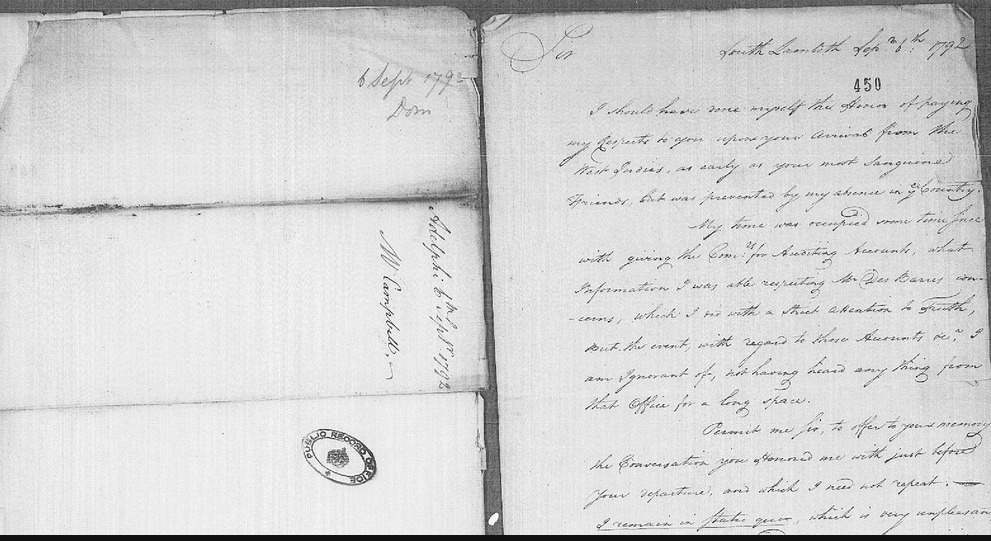 6 Sept 1792
Dom
Adelphi 6th Sepr 1792
Mr Campbell.
PUBLIC RECORD OFFICE
Sir
South Lambeth Sepr 6th 1792
450
I should have done myself the Honor of paying
my Respects to you upon your Arrival from the
West Indies, as early as your most Sanguine
Friends, but was prevented by my absence in ye Country.
My time was occupied some time since
with giving the Comrs for Auditing Accounts, what
Information I was able respecting Mr Des Barres con-
-cerns, which I did with a Strict Attention to Truth,
But the event, with regard to those Accounts &ca, I
am Ignorant of, not having heard any thing from
that Office for a long space.
Permit me Sir, to offer to your memory
the Conversation you Honored me with just before
your departure, and which I need not repeat. —
I remain in statu quo, which is very unpleasan